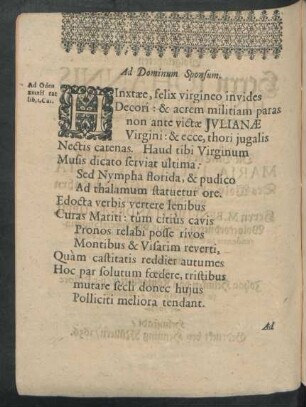 Ad Dominum Sponsum.
Ad Oden
lib. 1. Car.
HInxtæ, felix virgineo invides
Decori: & acrem militiam paras
non ante victæ JVLIANÆ
Virgini: & ecce, thori jugalis
Nectis catenas. Haud tibi Virginum
Musis dicato serviat ultima:
Sed Nympha florida, & pudico
Ad thalamum statuetur ore.
Edocta verbis vertere senibus
Curas Mariti: tùm citiùs cavis
Pronos relabi posse rivos
Montibus & Visurim reverti,
Quàm castitatis reddier autumes
Hoc par solutum fœdere, tristibus
mutare secli donec hujus
Polliciti meliora tendant.
Ad